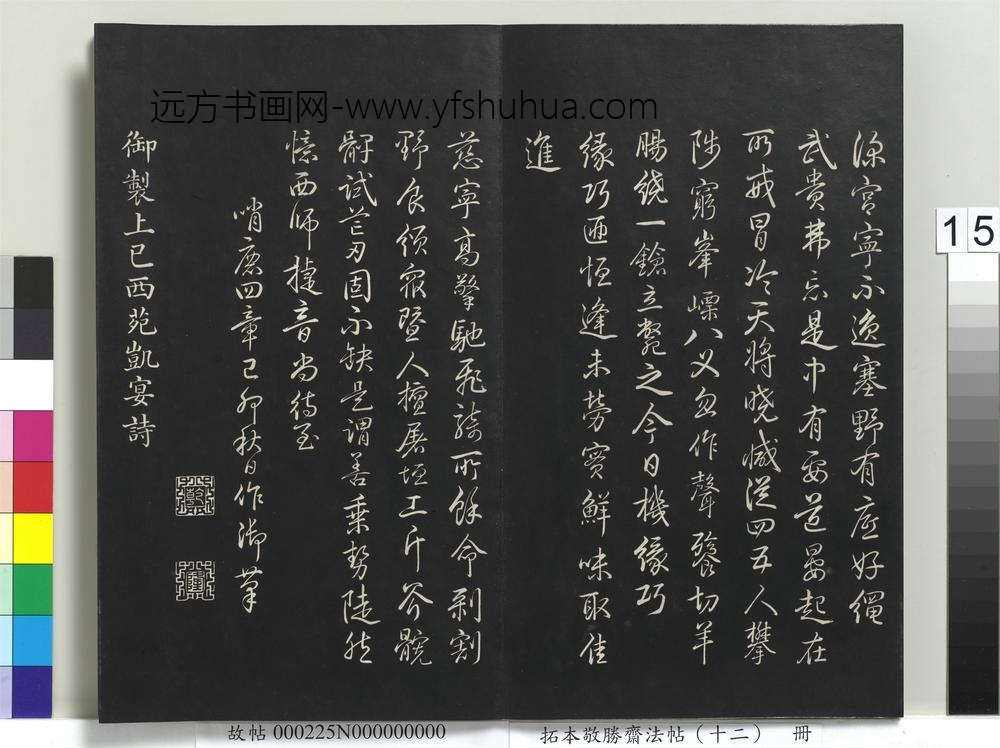 深宮寧不逸塞野有底好繩
武貴弗忘是中有要道晏起在
所戒冒冷天將曉減從四五人攀
陟窮峯嶛八叉忽作聲發切羊
腸繞一鎗立斃之今日機緣巧
緣巧迺恒逢未勞實鮮味取佳
進
慈寧高擎馳飛騎所餘命剥割
野食頒眾暨人擅屠垣工斤斧髖
髀試芒刃固不缺是謂善乗勢陡然
憶西師捷音尚待至
哨鹿四章己卯秋日作御筆
御製上巳西苑凱宴詩
远方书画网-www.yfshuhua.com
15
故帖 000225N000000000
拓本敬勝齋法帖（十二） 冊